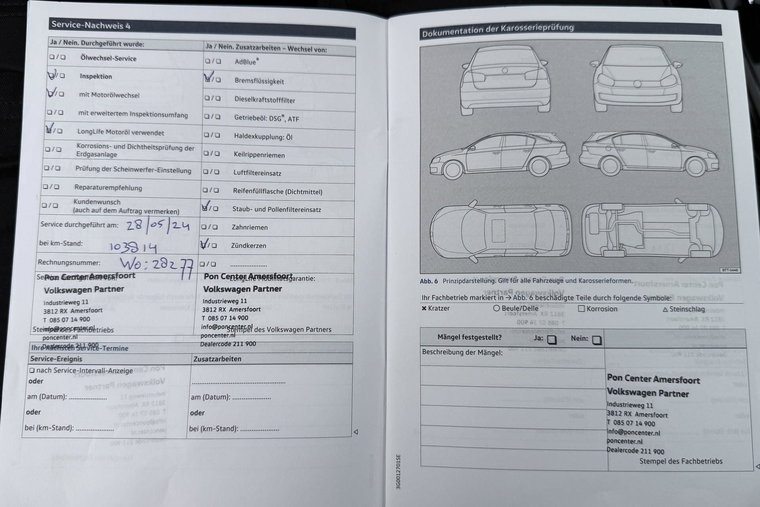 Service-Nachweis 4
Ja / Nein. Durchgeführt wurde:
Ölwechsel-Service
Inspektion
mit Motorölwechsel
mit erweitertem Inspektionsumfang
LongLife Motoröl verwendet
Korrosions- und Dichtheitsprüfung der
Erdgasanlage
Prüfung der Scheinwerfer-Einstellung
Reparaturempfehlung
Kundenwunsch
(auch auf dem Auftrag vermerken)
Service durchgeführt am: 28/05/24
bei km-Stand: 103814
Rechnungsnummer: Wo: 28277
Pon Center Amersfoort
Volkswagen Partner
Industrieweg 11
3812 RX Amersfoort
T 085 07 14 900
info@poncenter.nl
poncenter.nl
Dealercode 211 900
Stempel des Fachbetriebs
Ja / Nein. Zusatzarbeiten – Wechsel von:
AdBlue®
Bremsflüssigkeit
Dieselkraftstofffilter
Getriebeöl: DSG®, ATF
Haldexkupplung: Öl
Keilrippenriemen
Luftfiltereinsatz
Reifenfüllflasche (Dichtmittel)
Staub- und Pollenfiltereinsatz
Zahnriemen
Zündkerzen
Pon Center Amersfoort
Volkswagen Partner
Industrieweg 11
3812 RX Amersfoort
T 085 07 14 900
info@poncenter.nl
poncenter.nl
Dealercode 211 900
Stempel des Volkswagen Partners
Ihre nächsten Service-Termine
Service-Ereignis
nach Service-Intervall-Anzeige
oder
am (Datum): ....................
oder
bei (km-Stand): ....................
Zusatzarbeiten
am (Datum): ....................
oder
bei (km-Stand): ....................
Dokumentation der Karosserieprüfung
Abb. 6 Prinzipdarstellung: Gilt für alle Fahrzeuge und Karosserieformen.
Ihr Fachbetrieb markiert in → Abb. 6 beschädigte Teile durch folgende Symbole:
× Kratzer ○ Beule/Delle □ Korrosion △ Steinschlag
Mängel festgestellt? Ja: Nein:
Beschreibung der Mängel:
Pon Center Amersfoort
Volkswagen Partner
Industrieweg 11
3812 RX Amersfoort
T 085 07 14 900
info@poncenter.nl
poncenter.nl
Dealercode 211 900
Stempel des Fachbetriebs
3G0012701SE